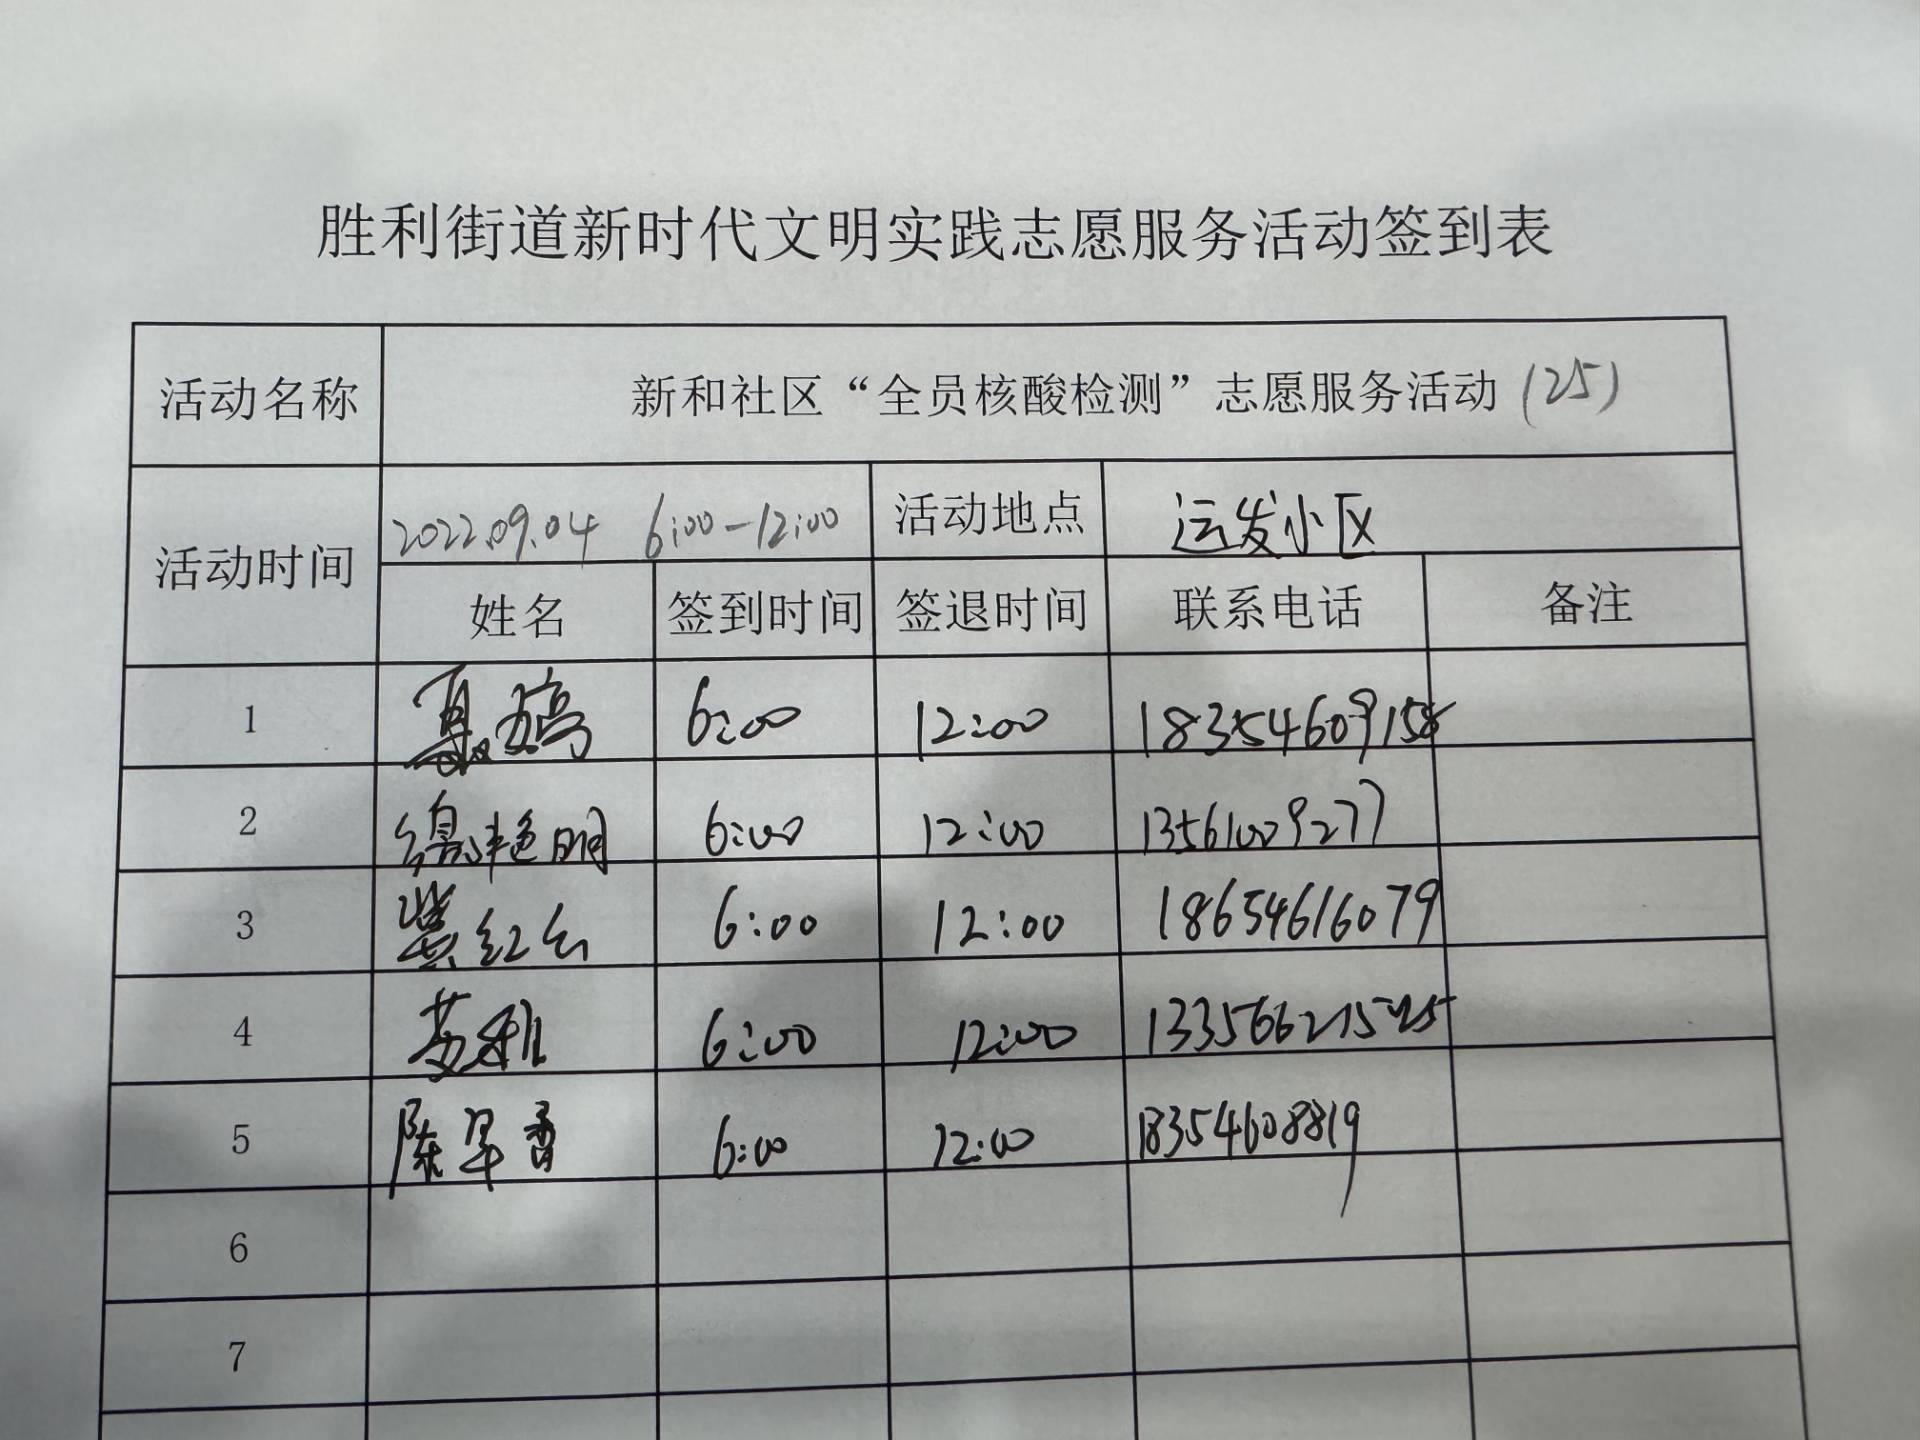 胜利街道新时代文明实践志愿服务活动签到表
活动名称 新和社区“全员核酸检测”志愿服务活动(25)
活动时间 2022.09.04 6:00-12:00 活动地点 运发小区
姓名 签到时间 签退时间 联系电话 备注
1 6:00 12:00 18354609158
2 艳明 6:00 12:00 13561009277
3 红 6:00 12:00 18654616079
4 6:00 12:00
5 陈早香 6:00 12:00 18354608819
6
7